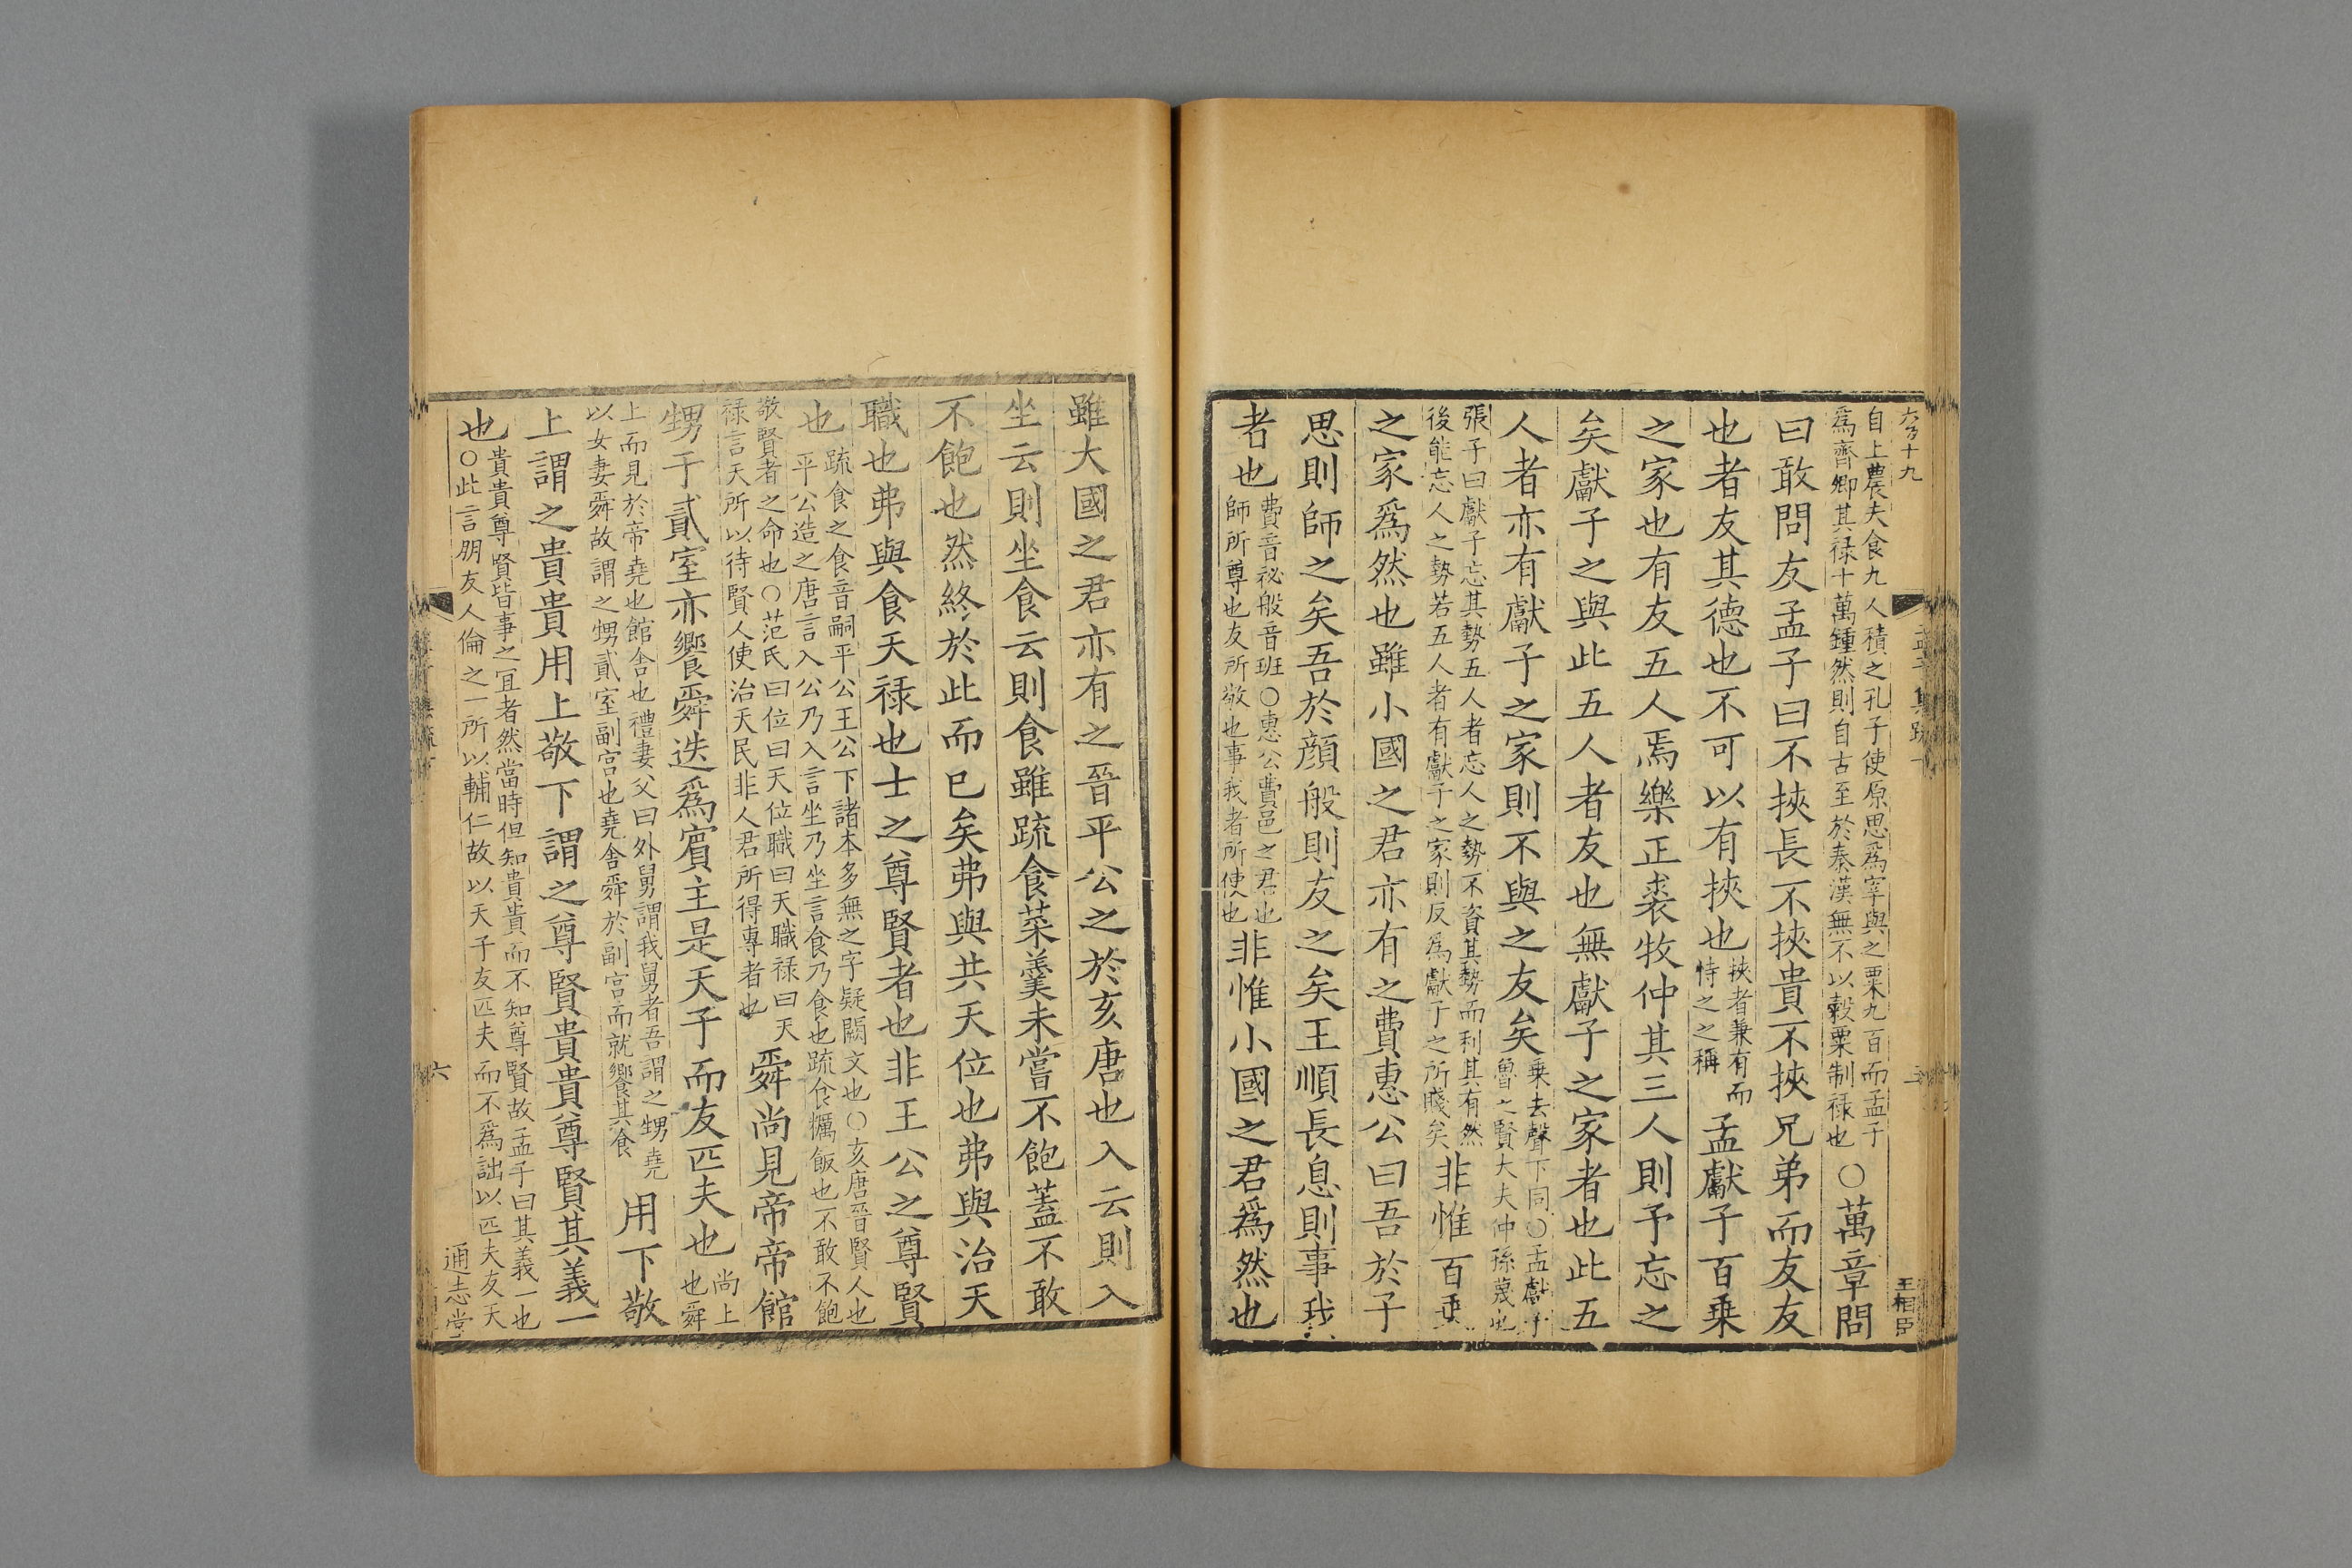 自上農夫食九人積之孔子使原思爲宰與之粟九百而孟子
爲齊卿其禄十萬鍾然則自古至於秦漢無不以穀粟制禄也
○萬章問
曰敢問友孟子曰不挾長不挾貴不挾兄弟而友友
也者友其德也不可以有挾也
挾者兼有而
恃之之稱
孟獻子百乗
之家也有友五人焉樂正裘牧仲其三人則予忘之
矣獻子之與此五人者友也無獻子之家者也此五
人者亦有獻子之家則不與之友矣
乗去聲下同○孟獻子
魯之賢大夫仲孫蔑也
張子曰獻子忘其勢五人者忘人之勢不資其勢而利其有然
後能忘人之勢若五人者有獻子之家則反爲獻子之所賤矣
非惟百乗
之家爲然也雖小國之君亦有之費惠公曰吾於子
思則師之矣吾於顔般則友之矣王順長息則事我
者也
費音祕般音班○惠公費邑之君也
師所尊也友所敬也事我者所使也
非惟小國之君爲然也
王相臣
雖大國之君亦有之晉平公之於亥唐也入云則入
坐云則坐食云則食雖疏食菜羹未嘗不飽蓋不敢
不飽也然終於此而已矣弗與共天位也弗與治天
職也弗與食天禄也士之尊賢者也非王公之尊賢
也
疏食之食音嗣平公王公下諸本多無之字疑闕文也○亥唐晉賢人也
平公造之唐言入公乃入言坐乃坐言食乃食也疏食糲飯也不敢不飽
敬賢者之命也○范氏曰位曰天位職曰天職禄曰天
禄言天所以待賢人使治天民非人君所得專者也
舜尚見帝帝館
甥于貳室亦饗舜迭爲賓主是天子而友匹夫也
尚上
也舜
上而見於帝堯也館舍也禮妻父曰外舅謂我舅者吾謂之甥堯
以女妻舜故謂之甥貳室副宮也堯舍舜於副宮而就饗其食
用下敬
上謂之貴貴用上敬下謂之尊賢貴貴尊賢其義一
也
貴貴尊賢皆事之宜者然當時但知貴貴而不知尊賢故孟子曰其義一也
○此言朋友人倫之一所以輔仁故以天子友匹夫而不爲詘以匹夫友天
六
通志堂